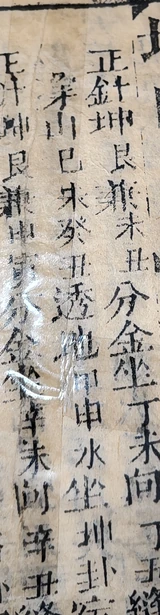 正針坤艮兼未丑分金坐丁未向丁丑縫
穿山己未癸丑透地甲申水坐坤卦
正針坤艮兼申寅分金坐辛未向辛丑縫